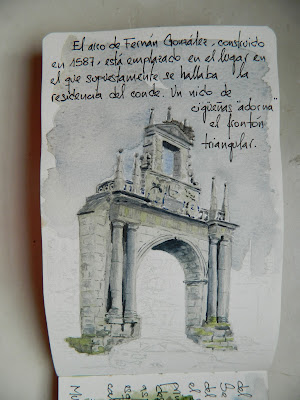 El arco de Fernán González, construido
en 1587, está emplazado en el lugar en
el que supuestamente se hallaba la
residencia del conde. Un nido de
cigüeñas "adorna"
el frontón
triangular.